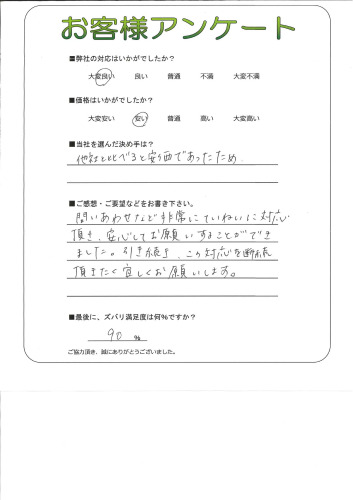 お客様アンケート
■弊社の対応はいかがでしたか?
大変良い 良い 普通 不満 大変不満
■価格はいかがでしたか?
大変安い 安い 普通 高い 大変高い
■当社を選んだ決め手は?
他社とくらべると安価であったため
■ご感想・ご要望などをお書き下さい。
問いあわせなど非常にていねいに対応
頂き、安心してお願いすることができ
ました。引き続き、この対応を継続
頂きたく宜しくお願いします。
■最後に、ズバリ満足度は何%ですか?
90 %
ご協力頂き、誠にありがとうございました。